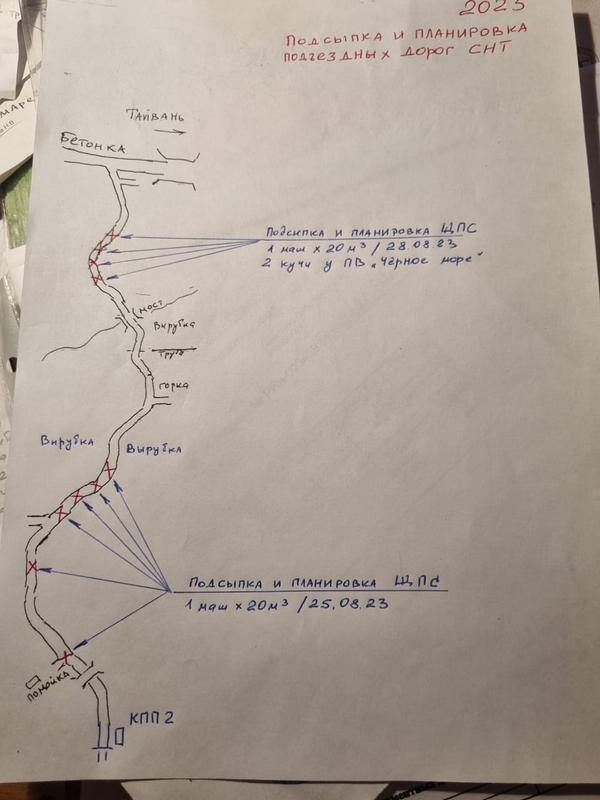 2023
Подсыпка и планировка
подъездных дорог СНТ
Тайвань
Бетонка
Подсыпка и планировка ЩПС
1 маш х 20 м³ / 28.08.23
2 кучи у ПВ „Чёрное море"
мост
Вырубка
труба
горка
Вырубка
Вырубка
Подсыпка и планировка ЩПС
1 маш х 20 м³ / 25.08.23
Помойка
КПП 2